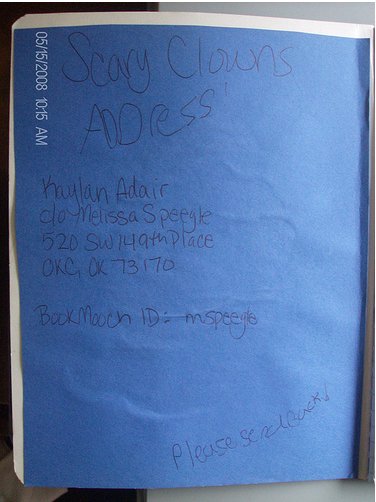 05/15/2008 10:15 AM
Scary Clowns
ADDress'
Kaylan Adair
c/o Melissa Speegle
520 SW 149th Place
OKC, OK 73170
BookMooch ID: mspeegle
Please send back!